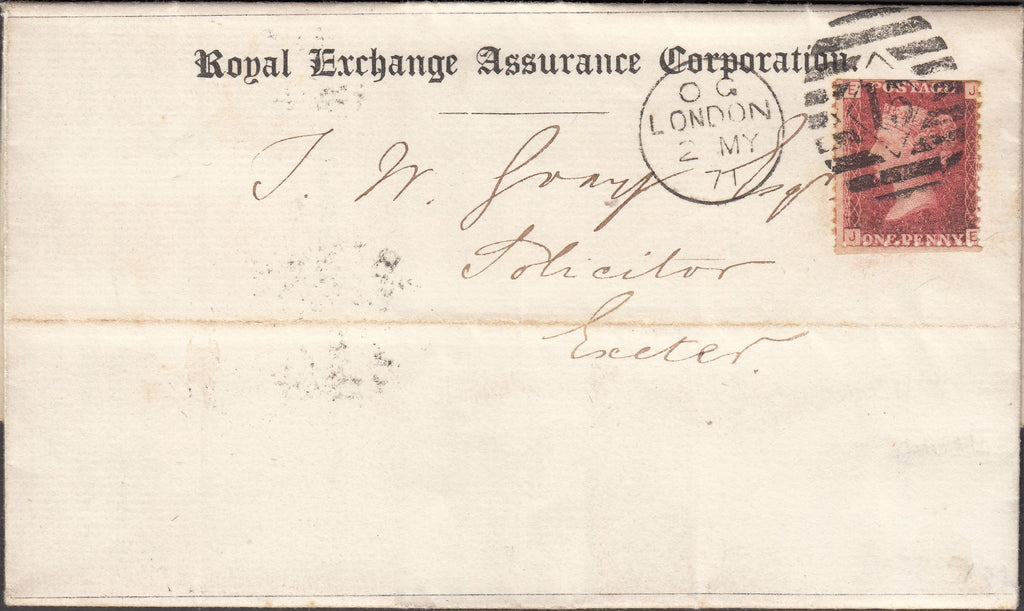 Royal Exchange Assurance Corporation.
O G
LONDON
2 MY
71
E POSTAGE J
J ONE PENNY E
T. W. Gray Esqr
Solicitor
Exeter.